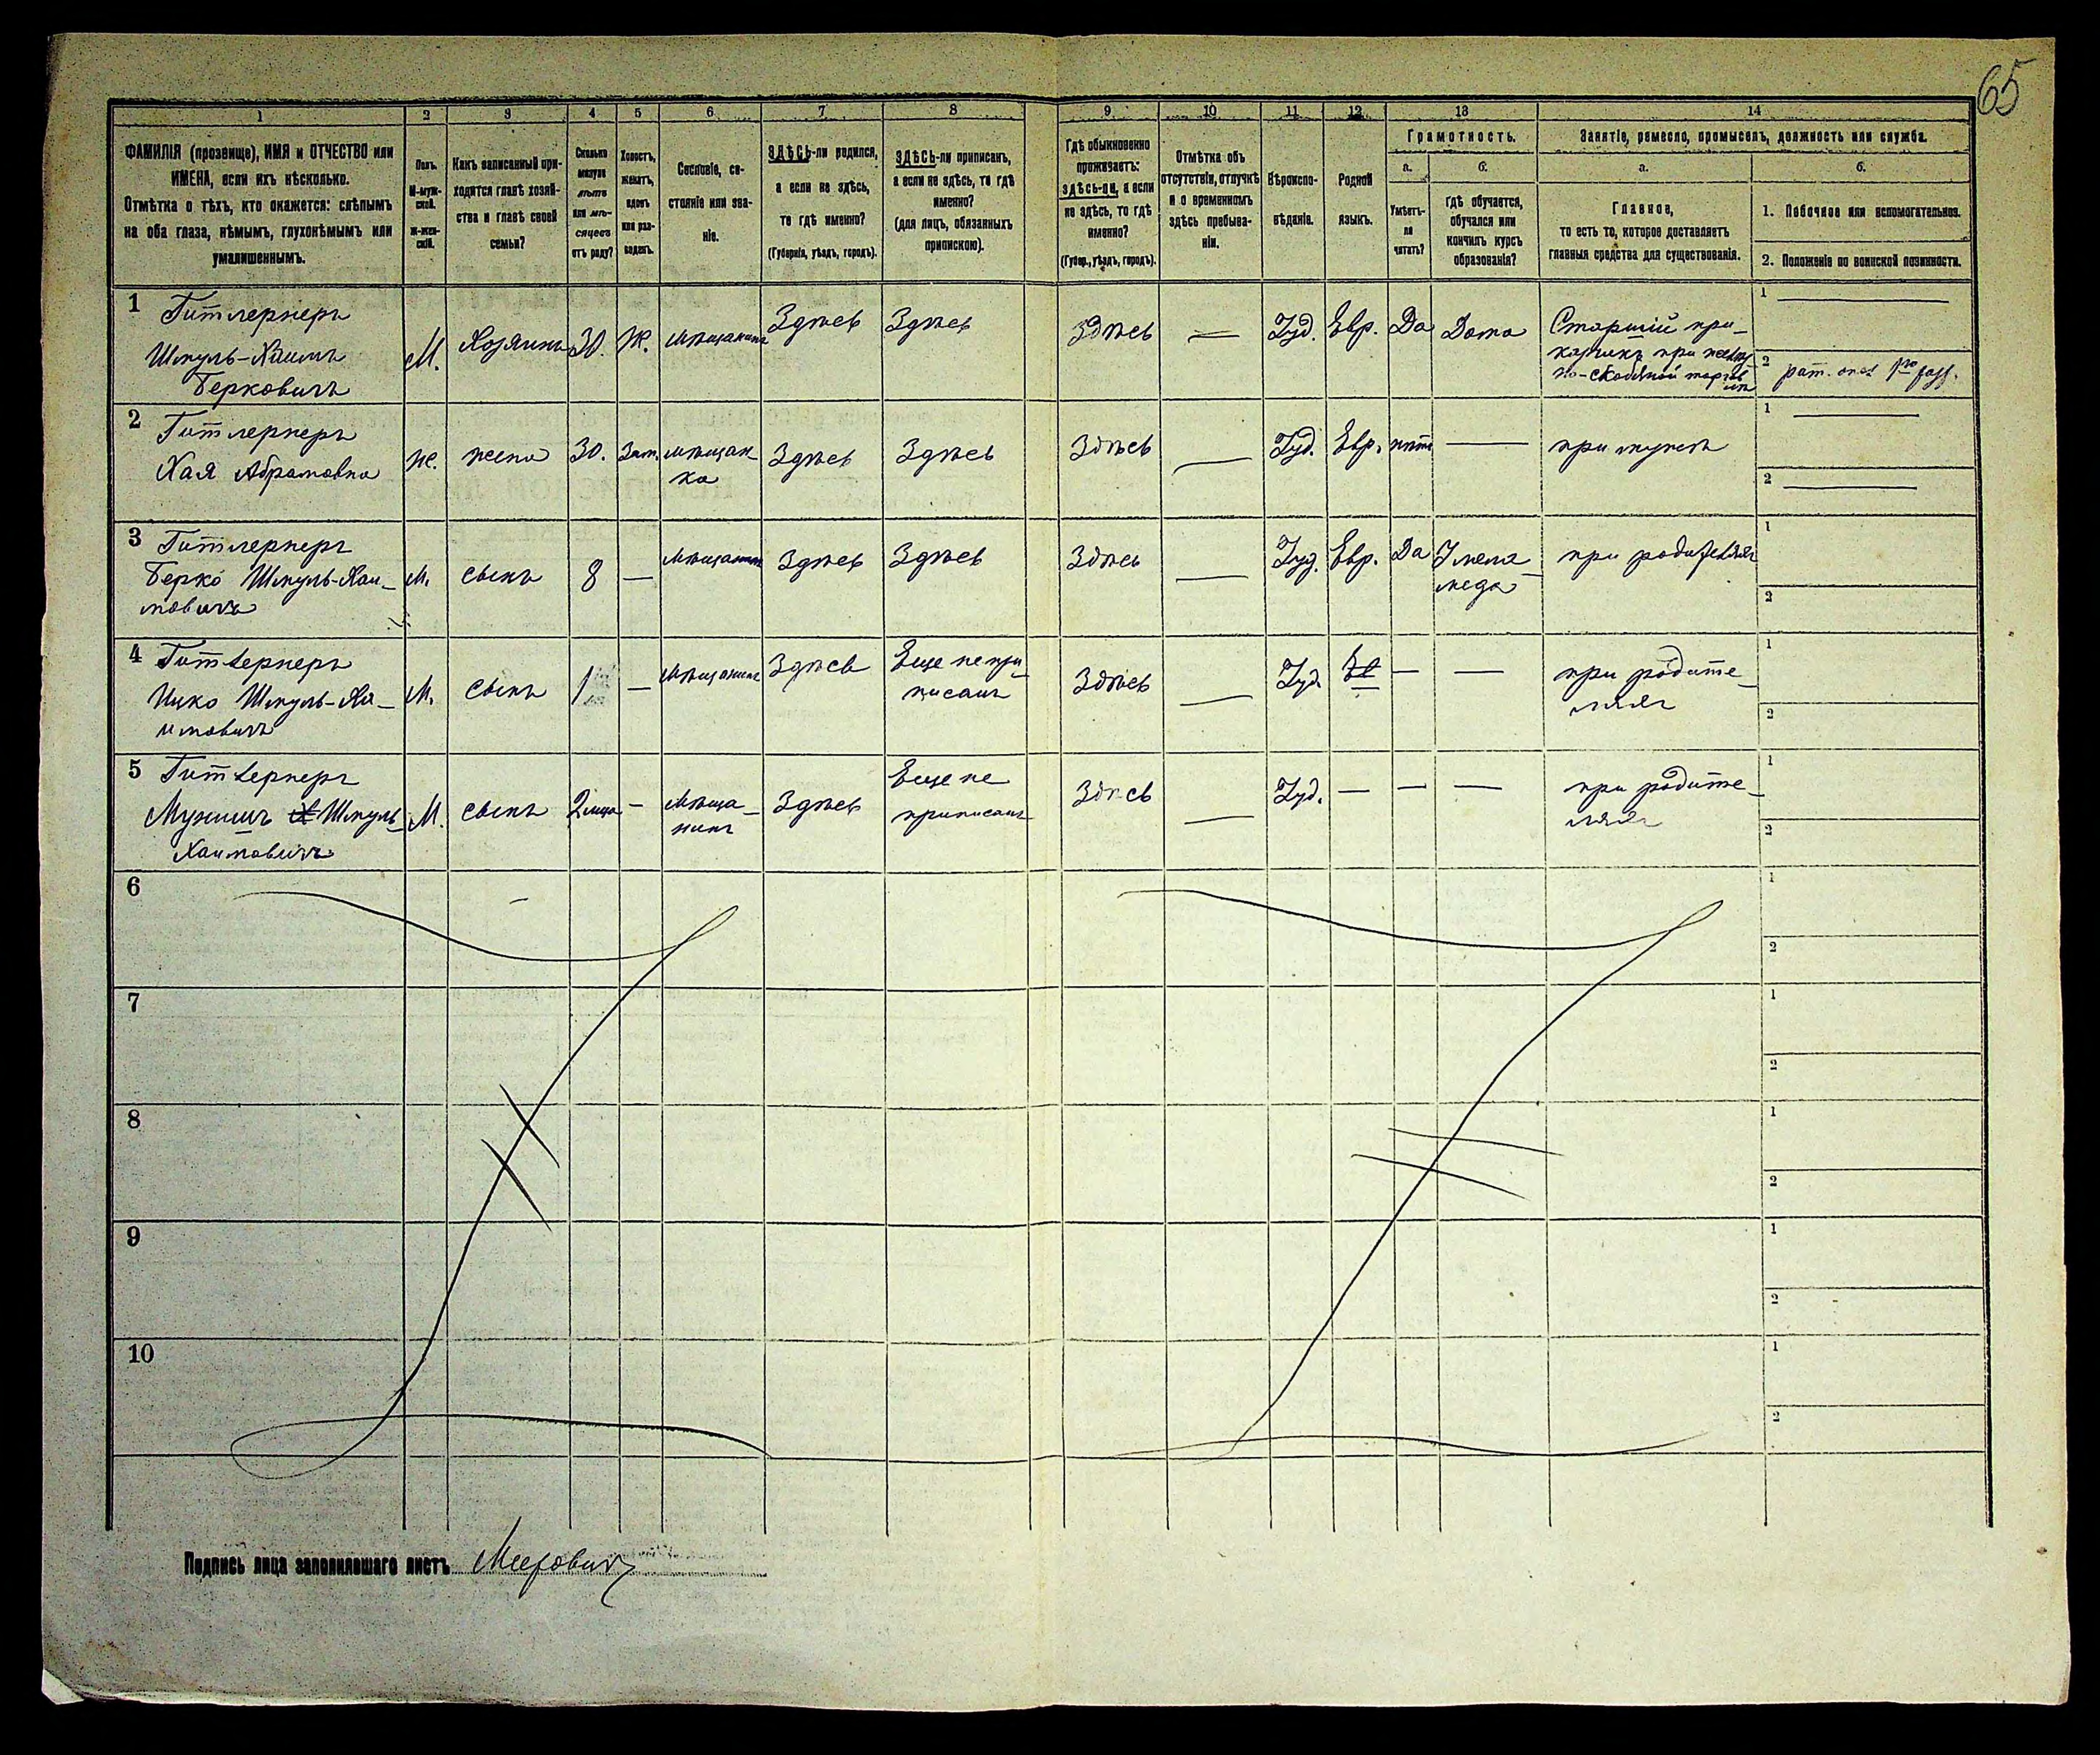 65
1 2 3 4 5 6 7 8 9 10 11 12 13 14
ФАМИЛІЯ (прозвище), ИМЯ и ОТЧЕСТВО или
ИМЕНА, если ихъ нѣсколько.
Отмѣтка о тѣхъ, кто окажется: слѣпымъ
на оба глаза, нѣмымъ, глухонѣмымъ или
умалишеннымъ.
Полъ.
М-муж-
ской.
Ж-жен-
скій.
Какъ записанный при-
ходится главѣ хозяй-
ства и главѣ своей
семьи?
Сколько
минуло
лѣтъ
или мѣ-
сяцевъ
отъ роду?
Холостъ,
женатъ,
вдовъ
или раз-
веденъ.
Сословіе, со-
стояніе или зва-
ніе.
ЗДѢСЬ-ли родился,
а если не здѣсь,
то гдѣ именно?
(Губернія, уѣздъ, городъ).
ЗДѢСЬ-ли приписанъ,
а если не здѣсь, то гдѣ
именно?
(для лицъ, обязанныхъ
припискою).
Гдѣ обыкновенно
проживаетъ:
здѣсь-ли, а если
не здѣсь, то гдѣ
именно?
(Губер., уѣздъ, городъ).
Отмѣтка объ
отсутствіи, отлучкѣ
и о временномъ
здѣсь пребыва-
ніи.
Вѣроиспо-
вѣданіе.
Родной
языкъ.
Грамотность.
а.
Умѣетъ-
ли
читать?
б.
Гдѣ обучается,
обучался или
кончилъ курсъ
образованія?
Занятіе, ремесло, промыселъ, должность или служба.
а.
Главное,
то есть то, которое доставляетъ
главныя средства для существованія.
б.
1. Побочное или вспомогательное.
2. Положеніе по воинской повинности.
1 Гитлернеръ
Шмуль-Хаимъ
Берковичъ
М. Хозяинъ 30. Ж. мѣщанинъ Здѣсь Здѣсь Здѣсь — Іуд. Евр. Да Дома
Старшій при-
кащикъ при
но-скобяной торгов
лѣ
1 —
2 рат. опол. 1го разр.
2 Гитлернеръ
Хая Абрамовна
ж. жена 30. Зам. мѣщан-
ка
Здѣсь Здѣсь Здѣсь — Іуд. Евр. нѣтъ — при мужѣ
1 —
2 —
3 Гитлернеръ
Берко Шмуль-Хаи-
мовичъ
М. сынъ 8 — Мѣщанинъ Здѣсь Здѣсь Здѣсь — Іуд. Евр. Да У мела-
меда
при родителяхъ
1
2
4 Гитлернеръ
Ицко Шмуль-Ха-
имовичъ
М. сынъ 1 — Мѣщанинъ Здѣсь Еще не при-
писанъ
Здѣсь — Іуд. — — при родите-
ляхъ
1
2
5 Гитлернеръ
Шмуль-
Хаимовичъ
М. сынъ 2 мѣся — Мѣща-
нинъ
Здѣсь Еще не
приписанъ
Здѣсь — Іуд. — — — при родите-
ляхъ
1
2
6
1
2
7
1
2
8
1
2
9
1
2
10
1
2
Подпись лица заполнившаго листъ